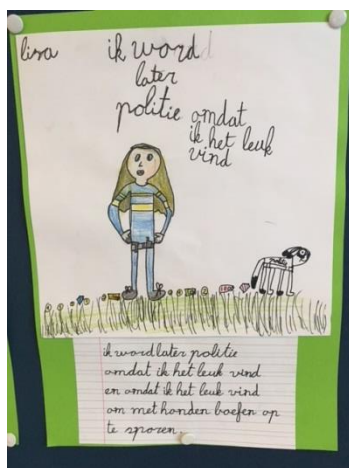 lisa
ik word
later
politie omdat
ik het leuk
vind
ik word later politie
omdat ik het leuk vind
en omdat ik het leuk vind
om met honden boefen op
te sporen.